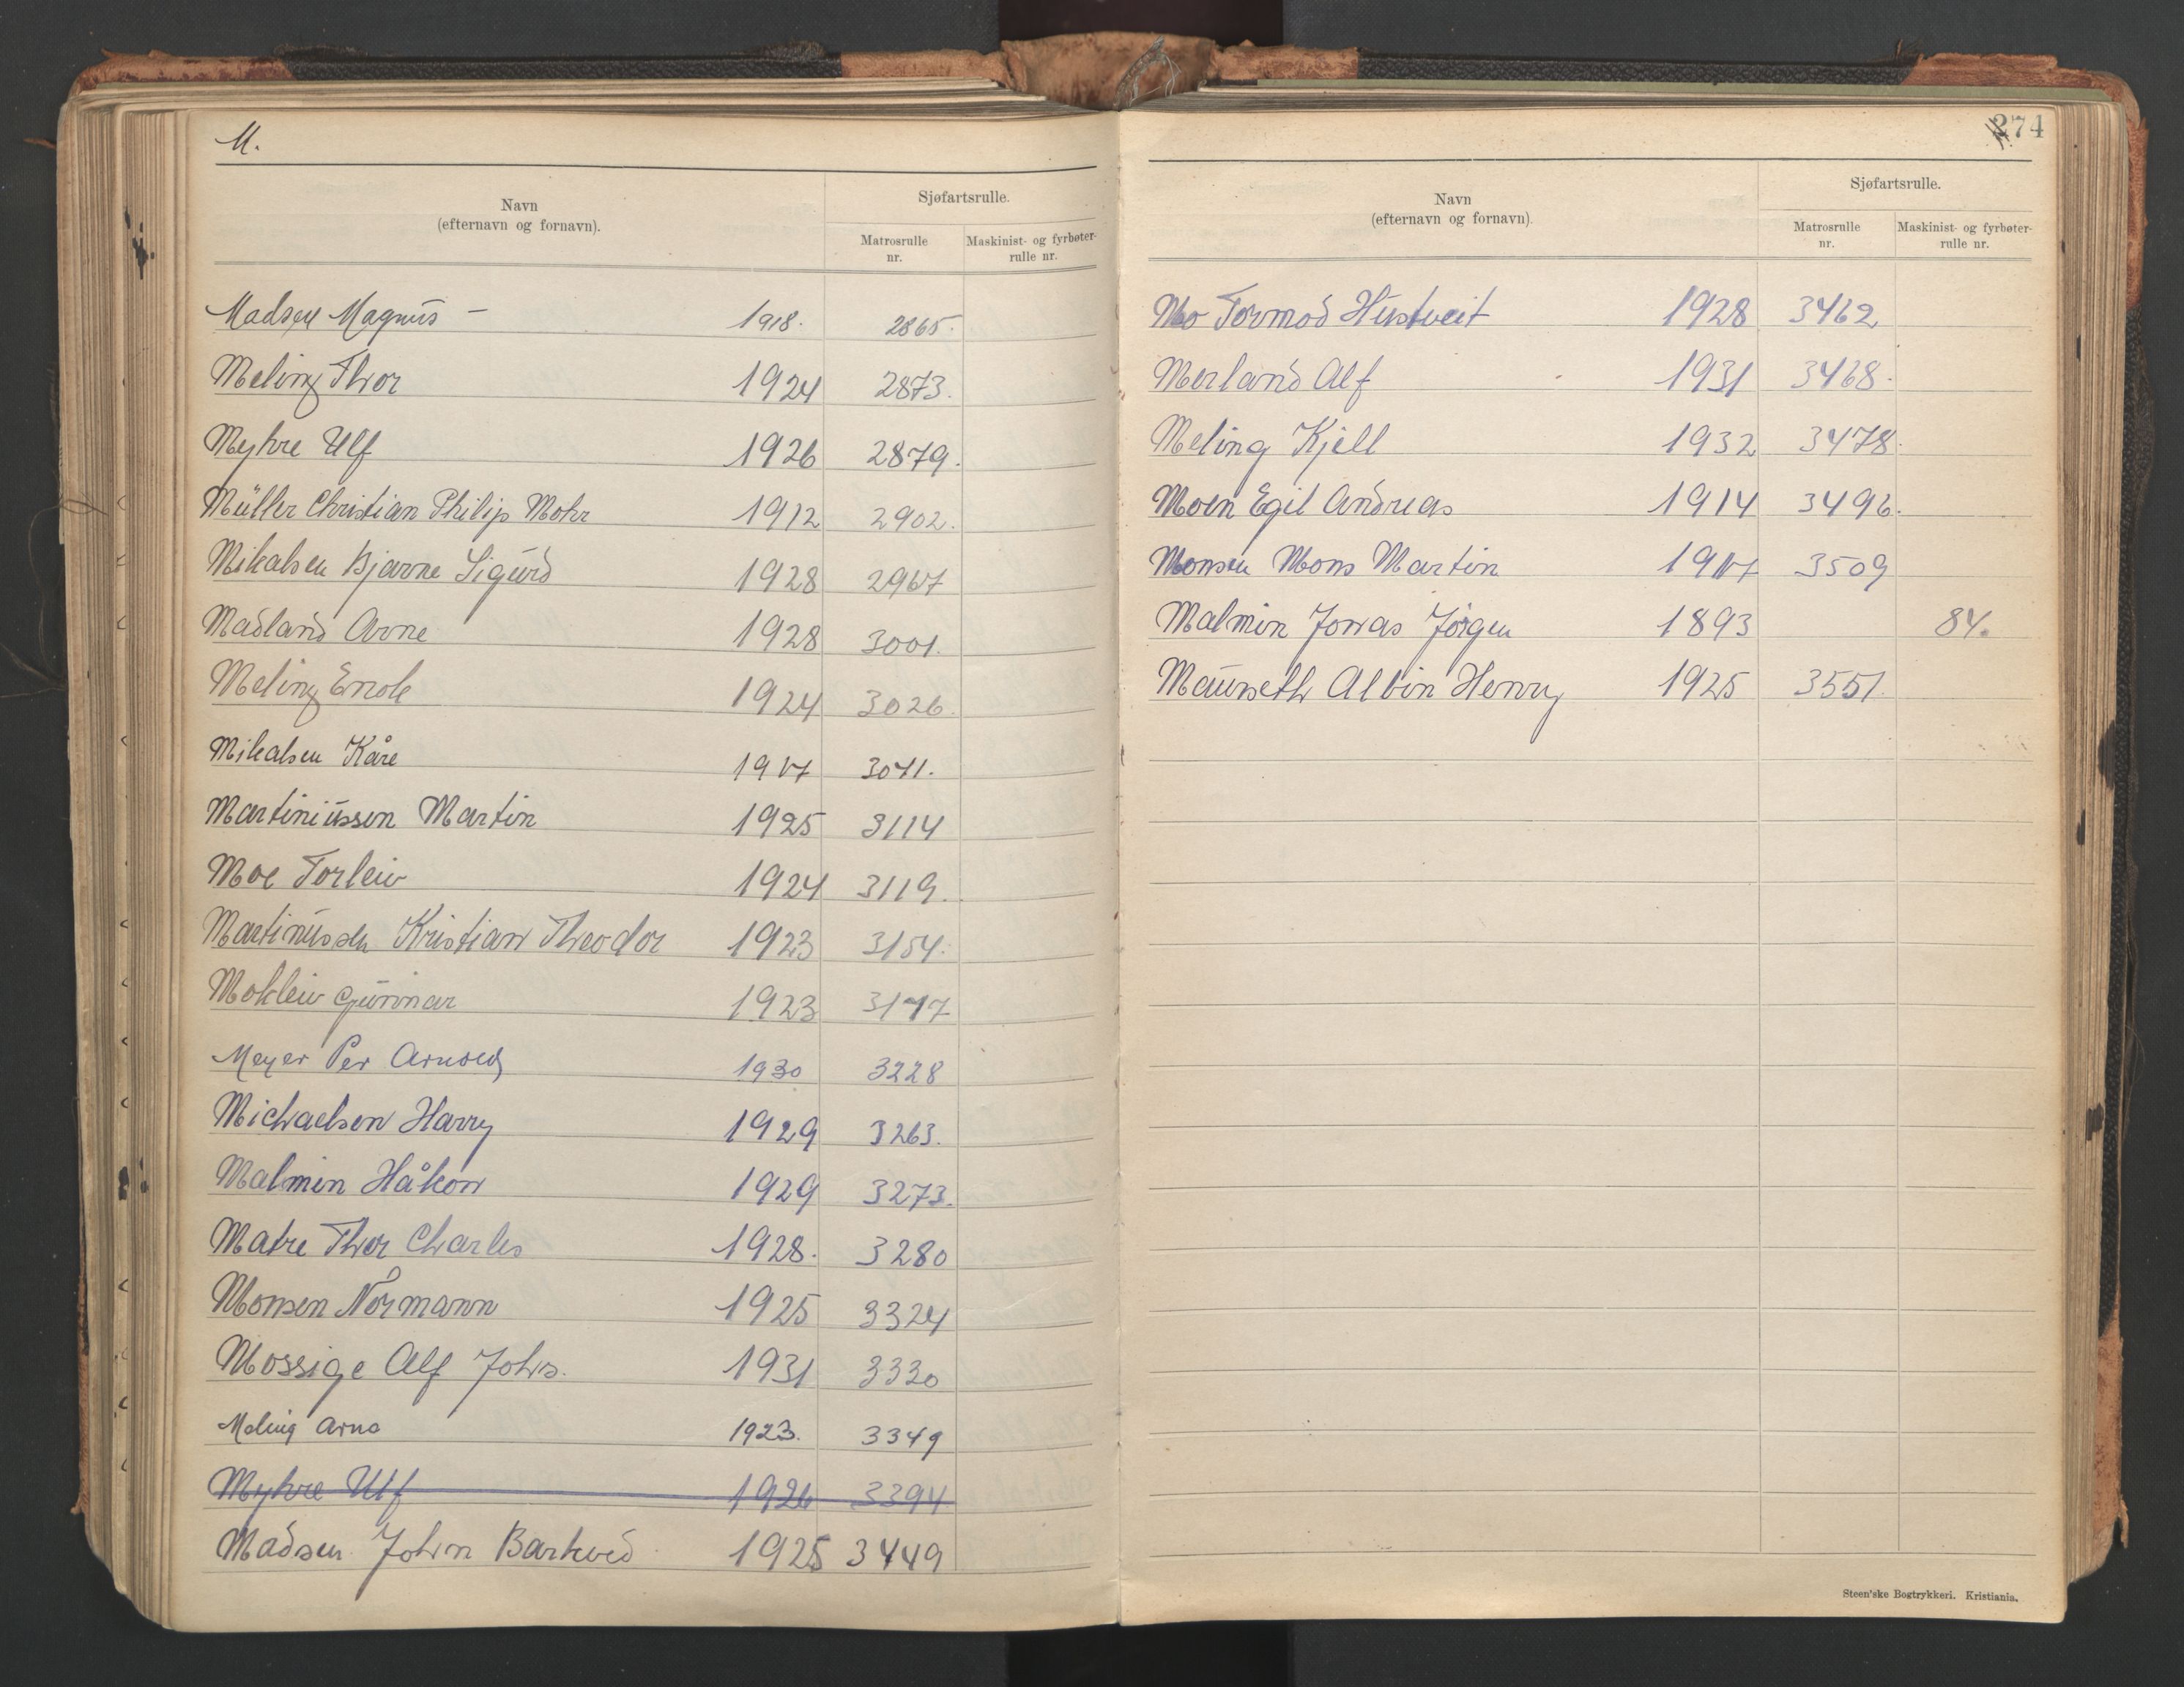 M.
Navn
(efternavn og fornavn).
Sjøfartsrulle.
Matrosrulle nr.
Maskinist- og fyrbøter-rulle nr.
Madsen Magnus – 1918. 2865.
Meling Thor 1924 2873.
Myhre Ulf 1926 2879.
Müller Christian Philip Mohr 1912 2902.
Mikalsen Bjarne Sigurd 1928 2967
Madland Arne 1928 3001.
Meling Enok 1924 3026.
Mikalsen Kåre 1917 3041.
Martiniussen Martin 1925 3114
Moe Torleiv 1924 3119.
Martinussen Kristian Theodor 1923 3154.
Mokleiv Gunnar 1923
Meyer Per Arnold 1930 3228
Michaelsen Harry 1929 3263.
Malmin Håkon 1929 3273.
Matre Thor Charles 1928. 3280
Monsen Normann 1925 3324
Mossige Alf Johs. 1931 3330
Meling Arne 1923. 3349
Myhre Ulf 1926 3394
Madsen John Barkved 1925 3449
274
Navn
(efternavn og fornavn).
Sjøfartsrulle.
Matrosrulle nr.
Maskinist- og fyrbøter-rulle nr.
Mo Tormod Hustveit 1928 3462
Merland Alf 1931 3468.
Meling Kjell 1932 3478.
Moen Egil Andreas 1914 3496.
Monsen Mons Martin 1917 3509
Malmin Jonas Jörgen 1893 84.
Maurseth Albin Henry 1925 3551.
Steen'ske Bogtrykkeri. Kristiania.